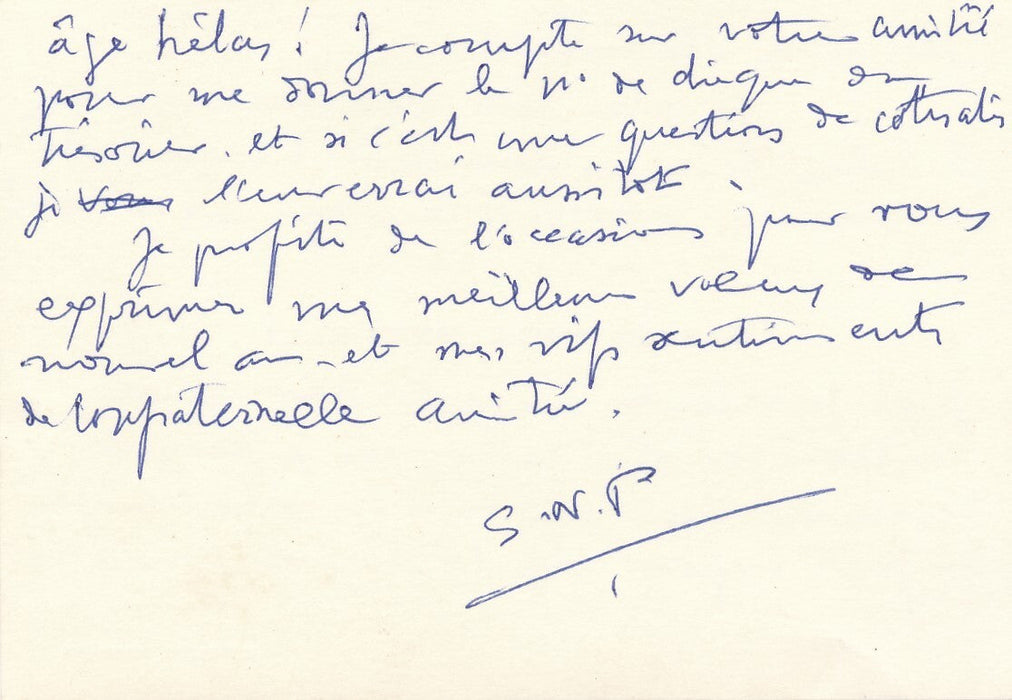 âge hélas ! Je compte sur votre amitié
pour me donner le n° de chèque du
trésorier. et si c'est une question de cotisatis
je vous l'enverrai aussitot.
Je profite de l'occasion pour vous
exprimer mes meilleurs voeux de
nouvel an et mes vifs sentiments
de confraternelle amitié.
S.N.P